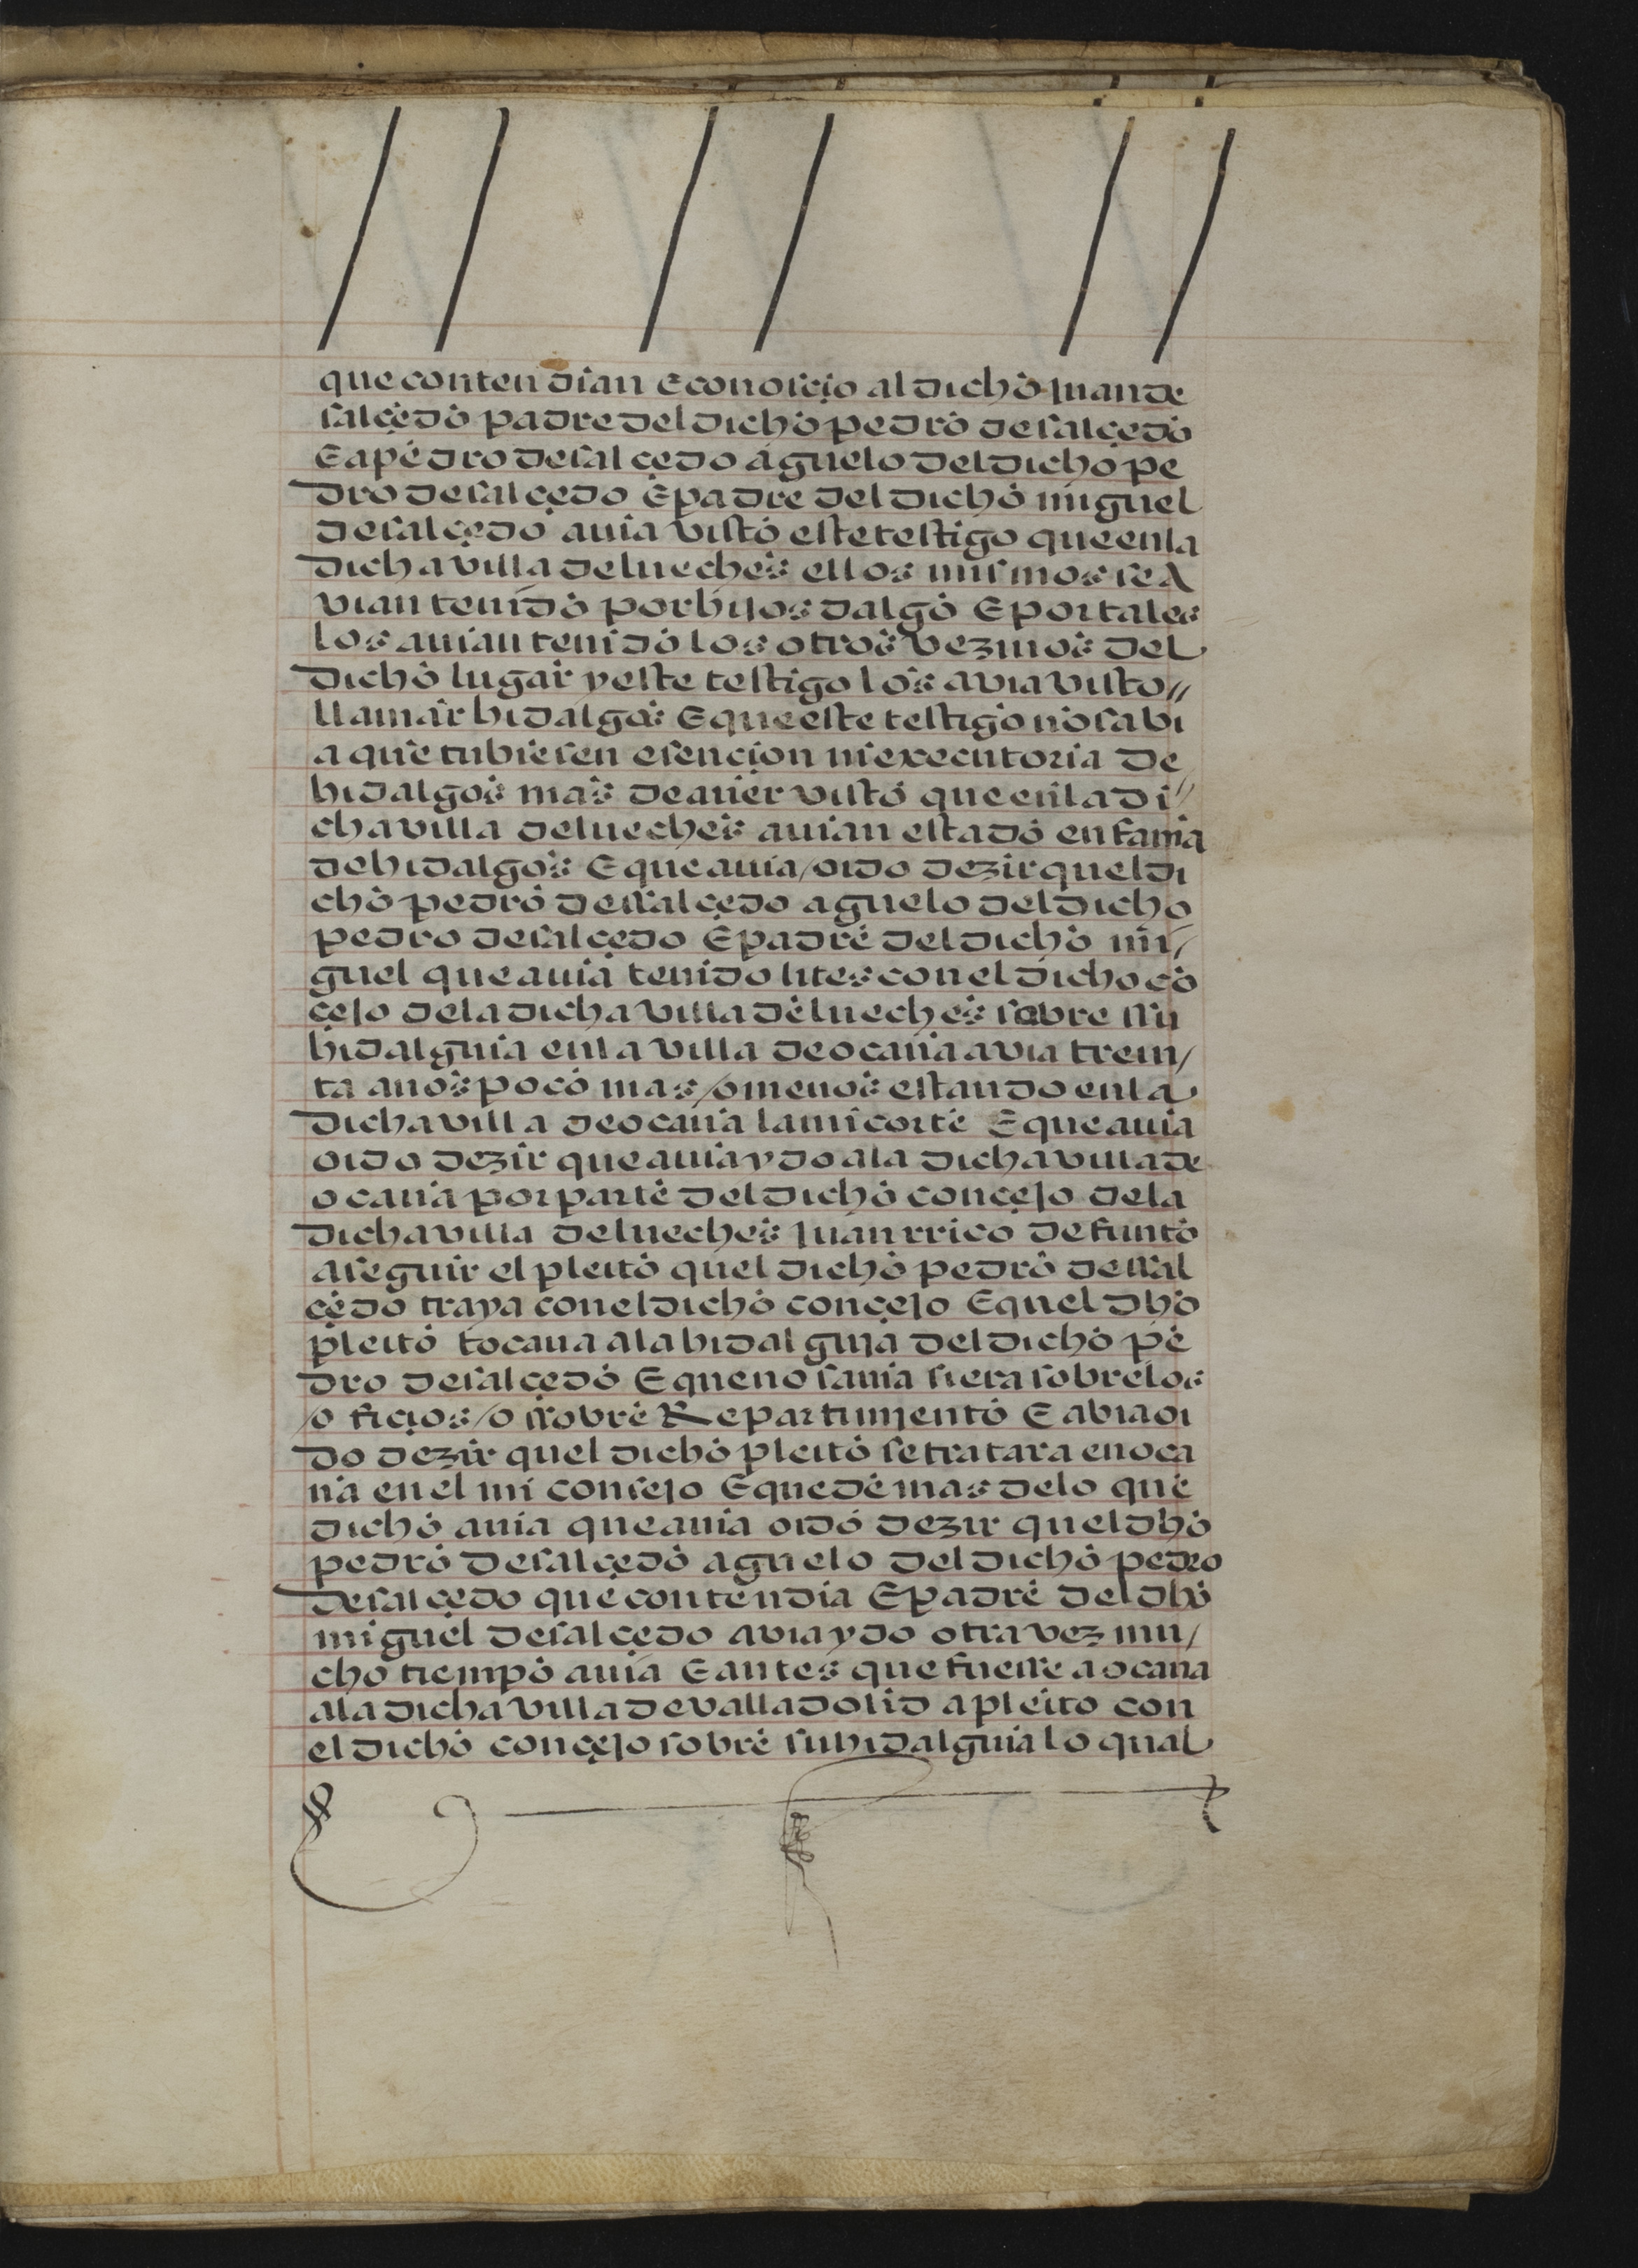 que contendian E conosçio al dicho Juan de
salçedo padre del dicho pedro de salçedo
E a pedro de salçedo aguelo del dicho pe
dro de salçedo E padre del dicho miguel
de salçedo auia visto este testigo que en la
dicha villa de lueches ellos mismos se a
vian tenido por hijos dalgo E por tales
los auian tenido los otros vezinos del
dicho lugar y este testigo los avia visto //
llamar hidalgos E que este testigo no sabi
a que tubiesen esencion ni executoria de
hidalgos mas de auer visto que en la di //
cha villa de lueches auian estado en fama
de hidalgos E que auia / oido dezir quel di
cho pedro de ssalçedo aguelo del dicho
pedro de salçedo E padre del dicho mi /
guel que auia tenido lites con el dicho cõ
çejo de la dicha villa de lueches sobre ssu
hidalguia en la villa de ocaña avia trein /
ta años poco mas / o menos estando en la
dicha villa de ocaña la mi corte E que auia
oido dezir que auia ydo a la dicha villa de
ocaña por parte del dicho conçejo de la
dicha villa de lueches Juan rrico defunto
a seguir el pleito quel dicho pedro de ssal
çedo traya con el dicho conçejo E quel dho
pleito tocaua a la hidalguia del dicho pe
dro de salçedo E que no sauia si era sobre los
/ o fiçios / o ssobre Repartimiento E abia oi
do dezir quel dicho pleito se tratara en oca
ña en el mi consejo E que de mas de lo que
dicho auia que auia oido dezir quel dho
pedro de salçedo aguelo del dicho pedro
de salçedo que contendia E padre del dho
miguel de salçedo avia ydo otra vez mu /
cho tiempo auia E antes que fuesse a ocaña
a la dicha villa de valladolid a pleito con
el dicho conçejo sobre su hidalguia lo qual